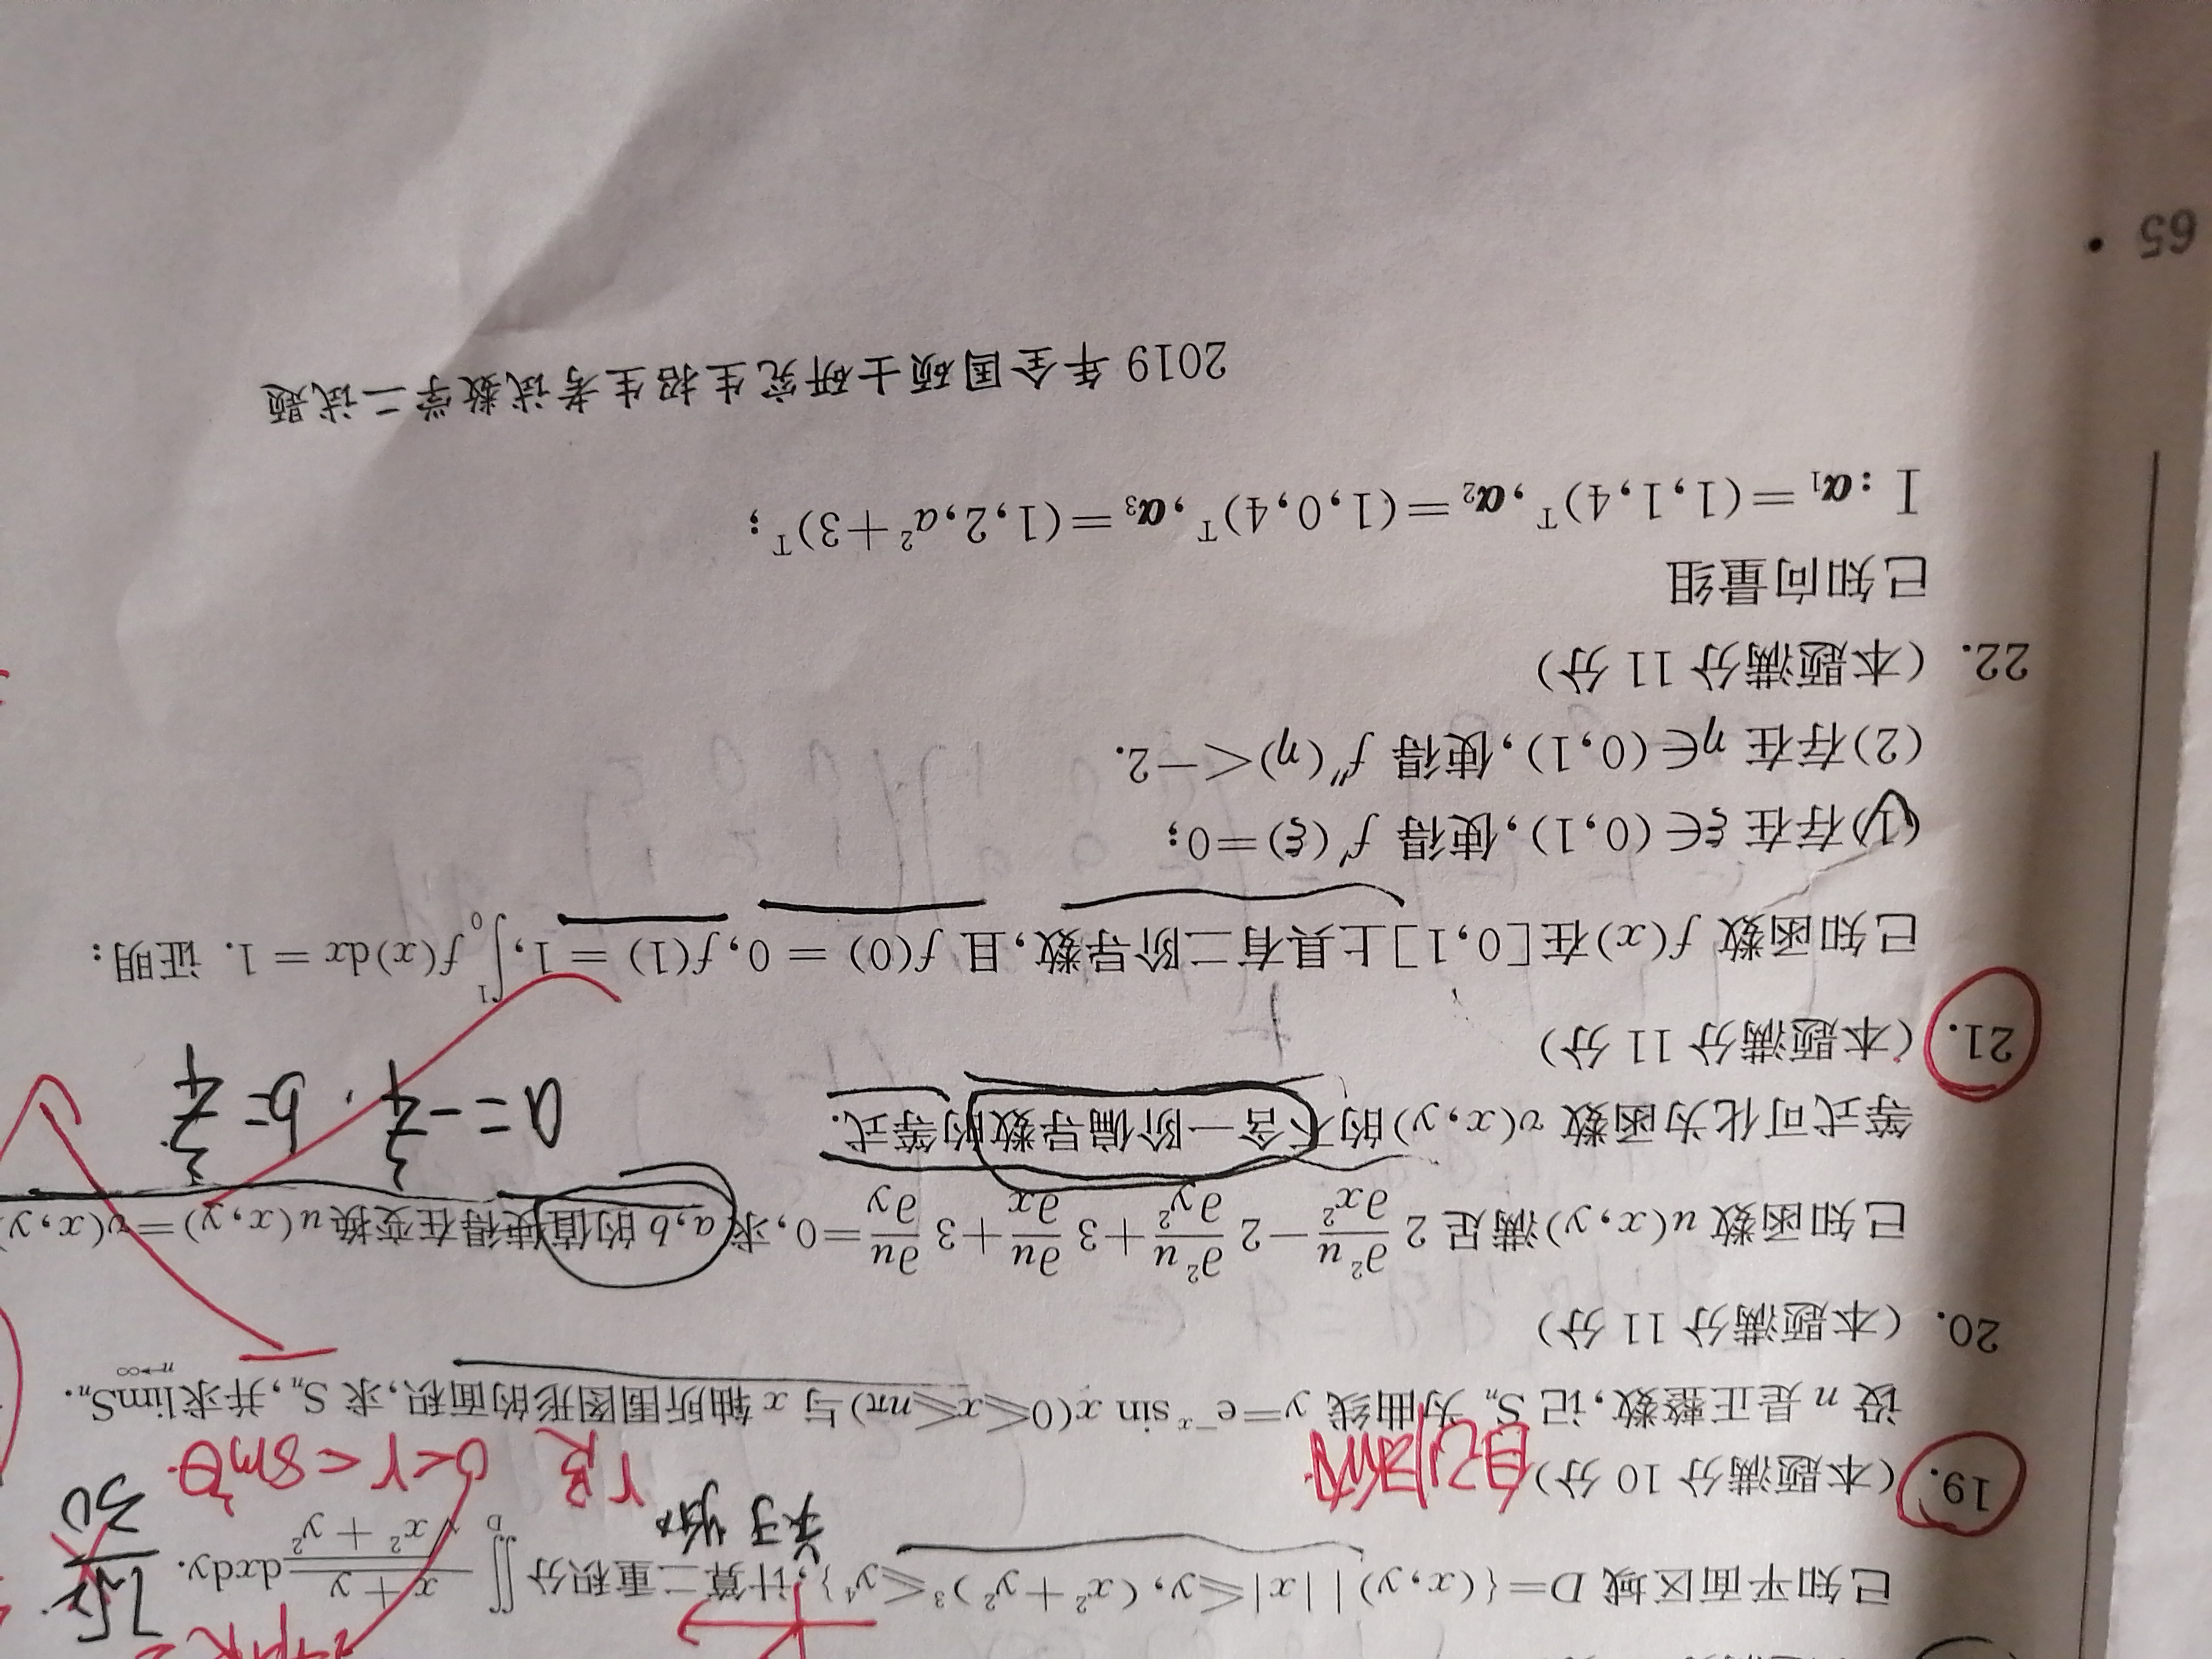 已知平面区域 D={(x,y)||x|≤y,(x²+y²)³≤y⁴},计算二重积分∬_D (x+y)/√(x²+y²) dxdy.
关于y轴
0<r<sin²θ
19. (本题满分 10 分)
设 n 是正整数,记 Sₙ 为曲线 y=e⁻ˣ sin x(0≤x≤nπ)与 x 轴所围图形的面积,求 Sₙ,并求 lim_{n→∞} Sₙ.
20. (本题满分 11 分)
已知函数 u(x,y)满足 2 ∂²u/∂x² −2 ∂²u/∂y² +3 ∂u/∂x +3 ∂u/∂y =0,求 a,b 的值使得在变换 u(x,y)=v(x,y)
等式可化为函数 v(x,y)的不含一阶偏导数的等式.
a=-3/4, b=3/4
21. (本题满分 11 分)
已知函数 f(x)在[0,1]上具有二阶导数,且 f(0) = 0,f(1) = 1,∫₀¹ f(x)dx = 1. 证明:
(1)存在 ξ∈(0,1),使得 f′(ξ)=0;
(2)存在 η∈(0,1),使得 f″(η)<−2.
22. (本题满分 11 分)
已知向量组
Ⅰ:α₁=(1,1,4)ᵀ,α₂=(1,0,4)ᵀ,α₃=(1,2,a²+3)ᵀ;
2019 年全国硕士研究生招生考试数学二试题
65 •